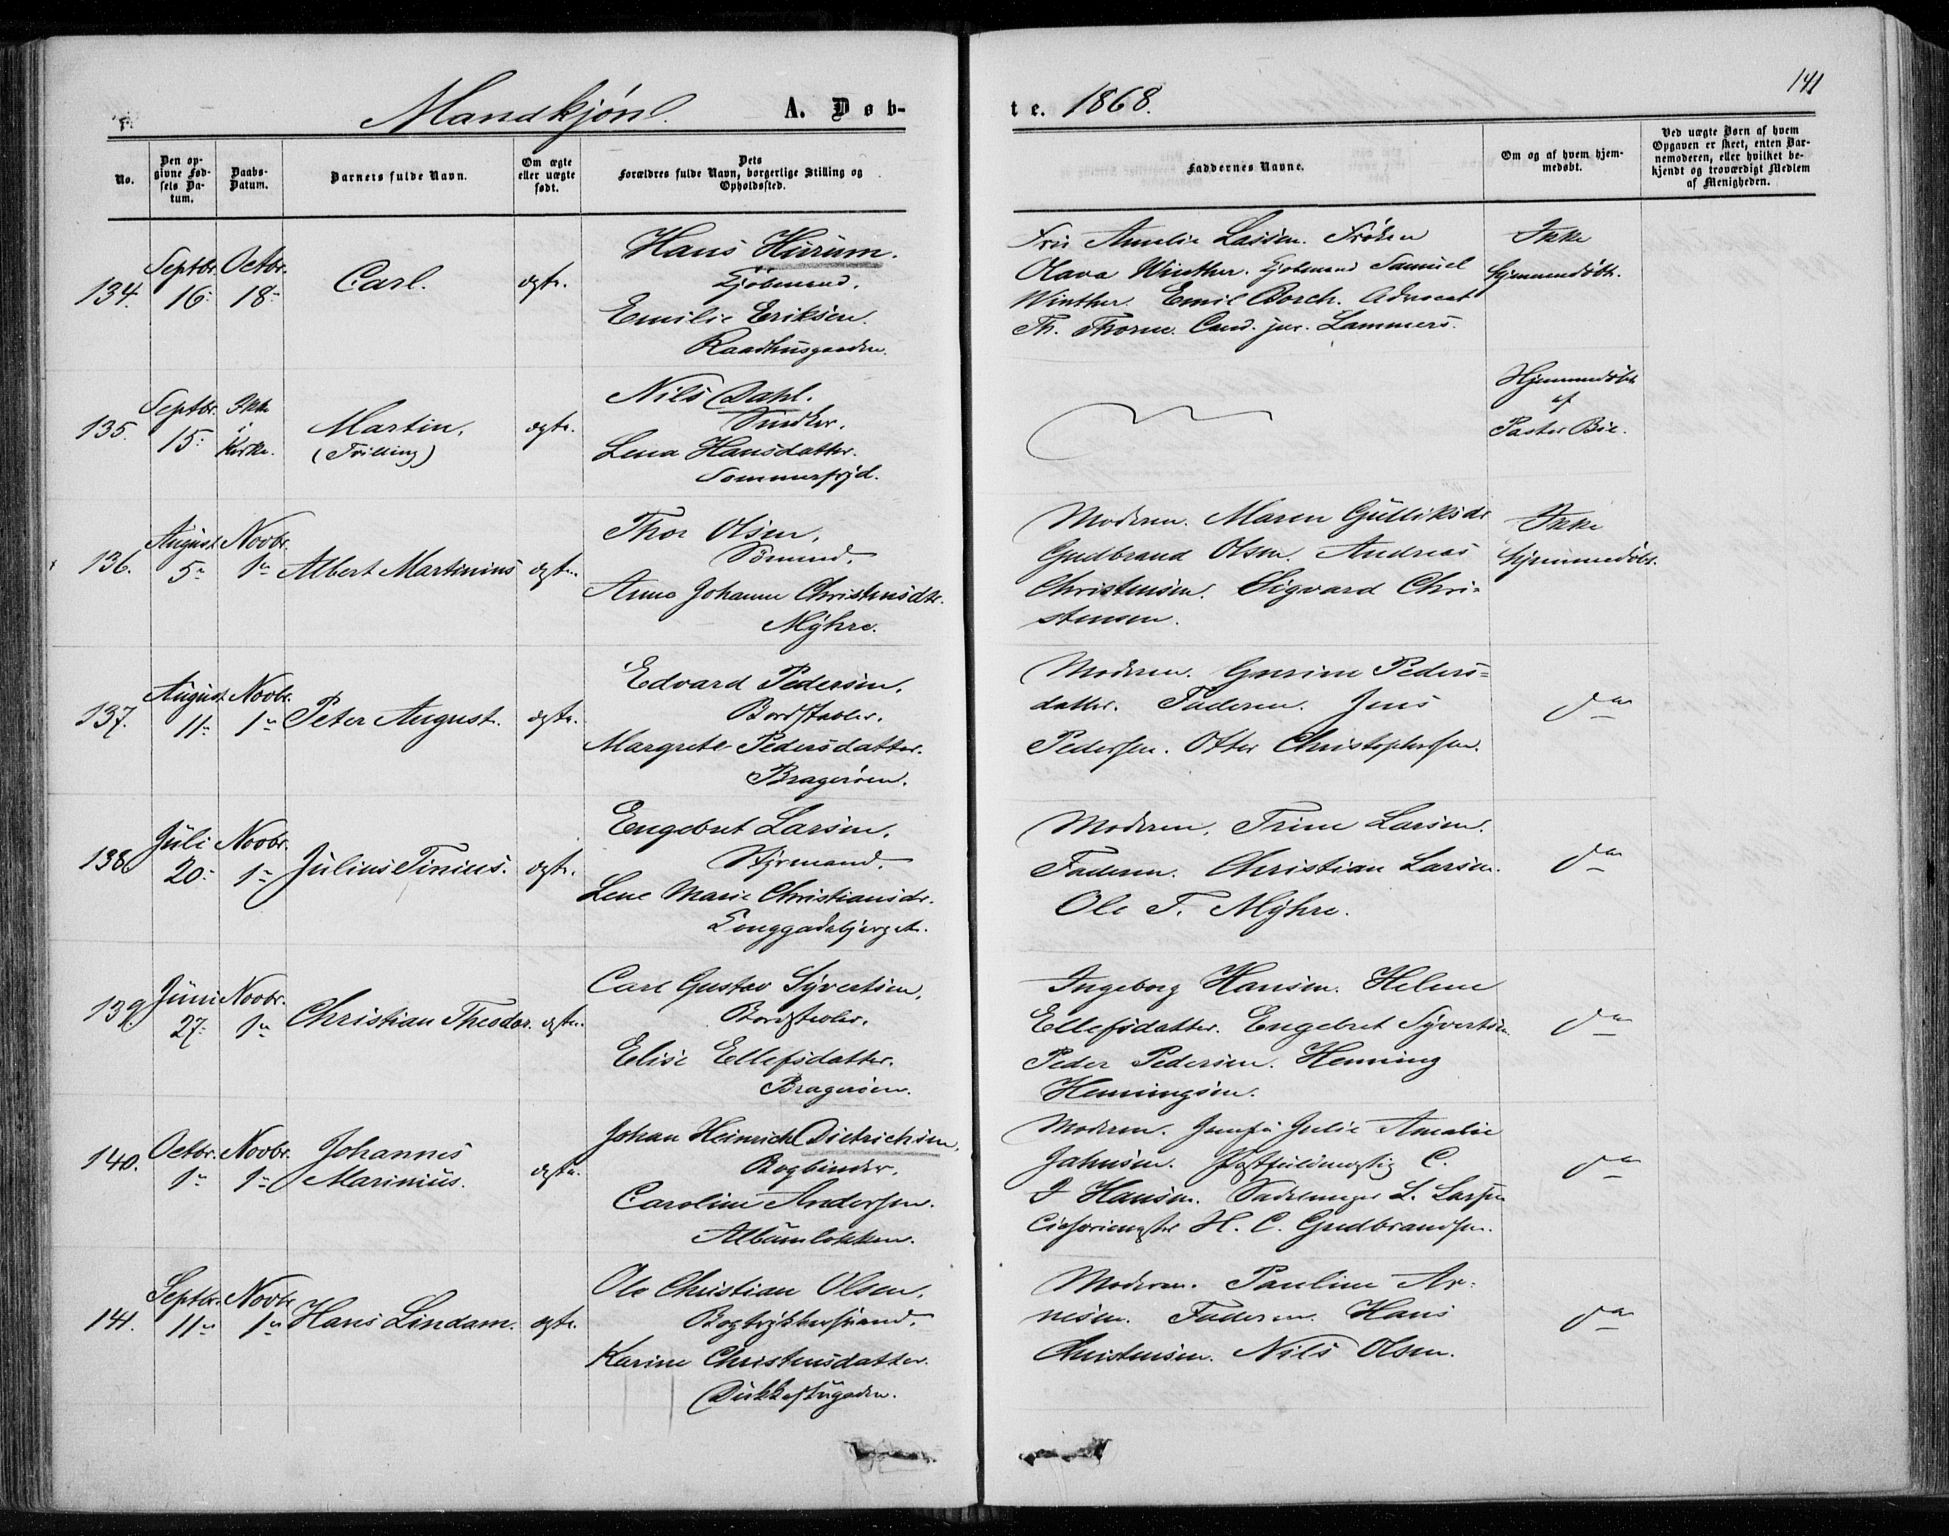 Mandkjøn. A. Døb-
te. 1868.
141
No.
Den op-
givne Fød-
sels Da-
tum.
Daabs-
Datum.
Barnets fulde Navn.
Om ægte
eller uægte
født.
Dets
Forældres fulde Navn, borgerlige Stilling og
Opholdssted.
Faddernes Navne.
Om og af hvem hjem-
medøbt.
Ved uægte Børn af hvem
Opgaven er skeet, enten Bar-
nemoderen, eller hvilket be-
kjendt og troværdigt Medlem
af Menigheden.
134.
Septbr.
16
Octbr.
18
Carl.
ægte.
Hans Hurum.
Kjøbmand.
Emilie Eriksen.
Raadhusgaarden.
Fru Amelie Lassen. Frøken
Olava Winther. Kjøbmand Samuel
Winther. Emil Borch. Advocat
Th. Thorne. Cand. jur. Lammers.
Ikke
hjemmedøbt.
135.
Septbr.
15
Ikke
i
Kirke.
Martin.
(Trilling)
ægte.
Nils Dahl.
Snedker.
Lena Hansdatter.
Sommerfryd.
Hjemmedøbt
af
Pastor Bie.
136.
August
5
Novbr.
1
Albert Martinius
ægte.
Thor Olsen.
Sømand.
Anne Johanne Christensdtr.
Myhre.
Moderen. Maren Gulliksdr
Gudbrand Olsen Andreas
Christensen. Sigvard Chri-
stensen.
Ikke
hjemmedøbt.
137.
August
11
Novbr.
1
Peter August.
ægte.
Edvard Pedersen.
Bordstabler.
Margrete Pedersdatter.
Bragerøen.
Moderen. Gurine Peders-
datter. Faderen. Jens
Pedersen. Otter Christophersen.
do
138.
Juli
20
Novbr.
1
Julius Tinius.
ægte.
Engebret Larsen.
Styrmand.
Lene Marie Christiansdr.
Moderen. Trine Larsen.
Faderen. Christian Larsen.
Ole T. Myhre.
do
139.
Juni
27
Novbr.
1
Christian Theodor.
ægte.
Carl Gustav Syvertsen.
Bordstabler.
Elise Ellefsdatter.
Bragerøen.
Ingeborg Hansen. Helene
Ellefsdatter. Engebret Syvertsen
Peder Pedersen. Henning
Henningsen.
do
140.
Octbr.
1
Novbr.
1
Johannes
Marinius.
ægte.
Johan Heinrich Dietrichsen.
Bogbinder.
Caroline Andersen.
Albumløkken.
Moderen. Jomfr Julie Amalie
Jahnsen. Postfuldmægtig C.
J Hansen. Sadelmager L. Larsen
H. C. Gudbrandsen.
do
141.
Septbr.
11
Novbr
1
Hans Lindam.
ægte.
Ole Christian Olsen.
Bogtrykkersvend.
Karine Christensdatter.
Moderen. Pauline Ar-
nesen. Faderen. Hans
Christensen. Nils Olsen.
do